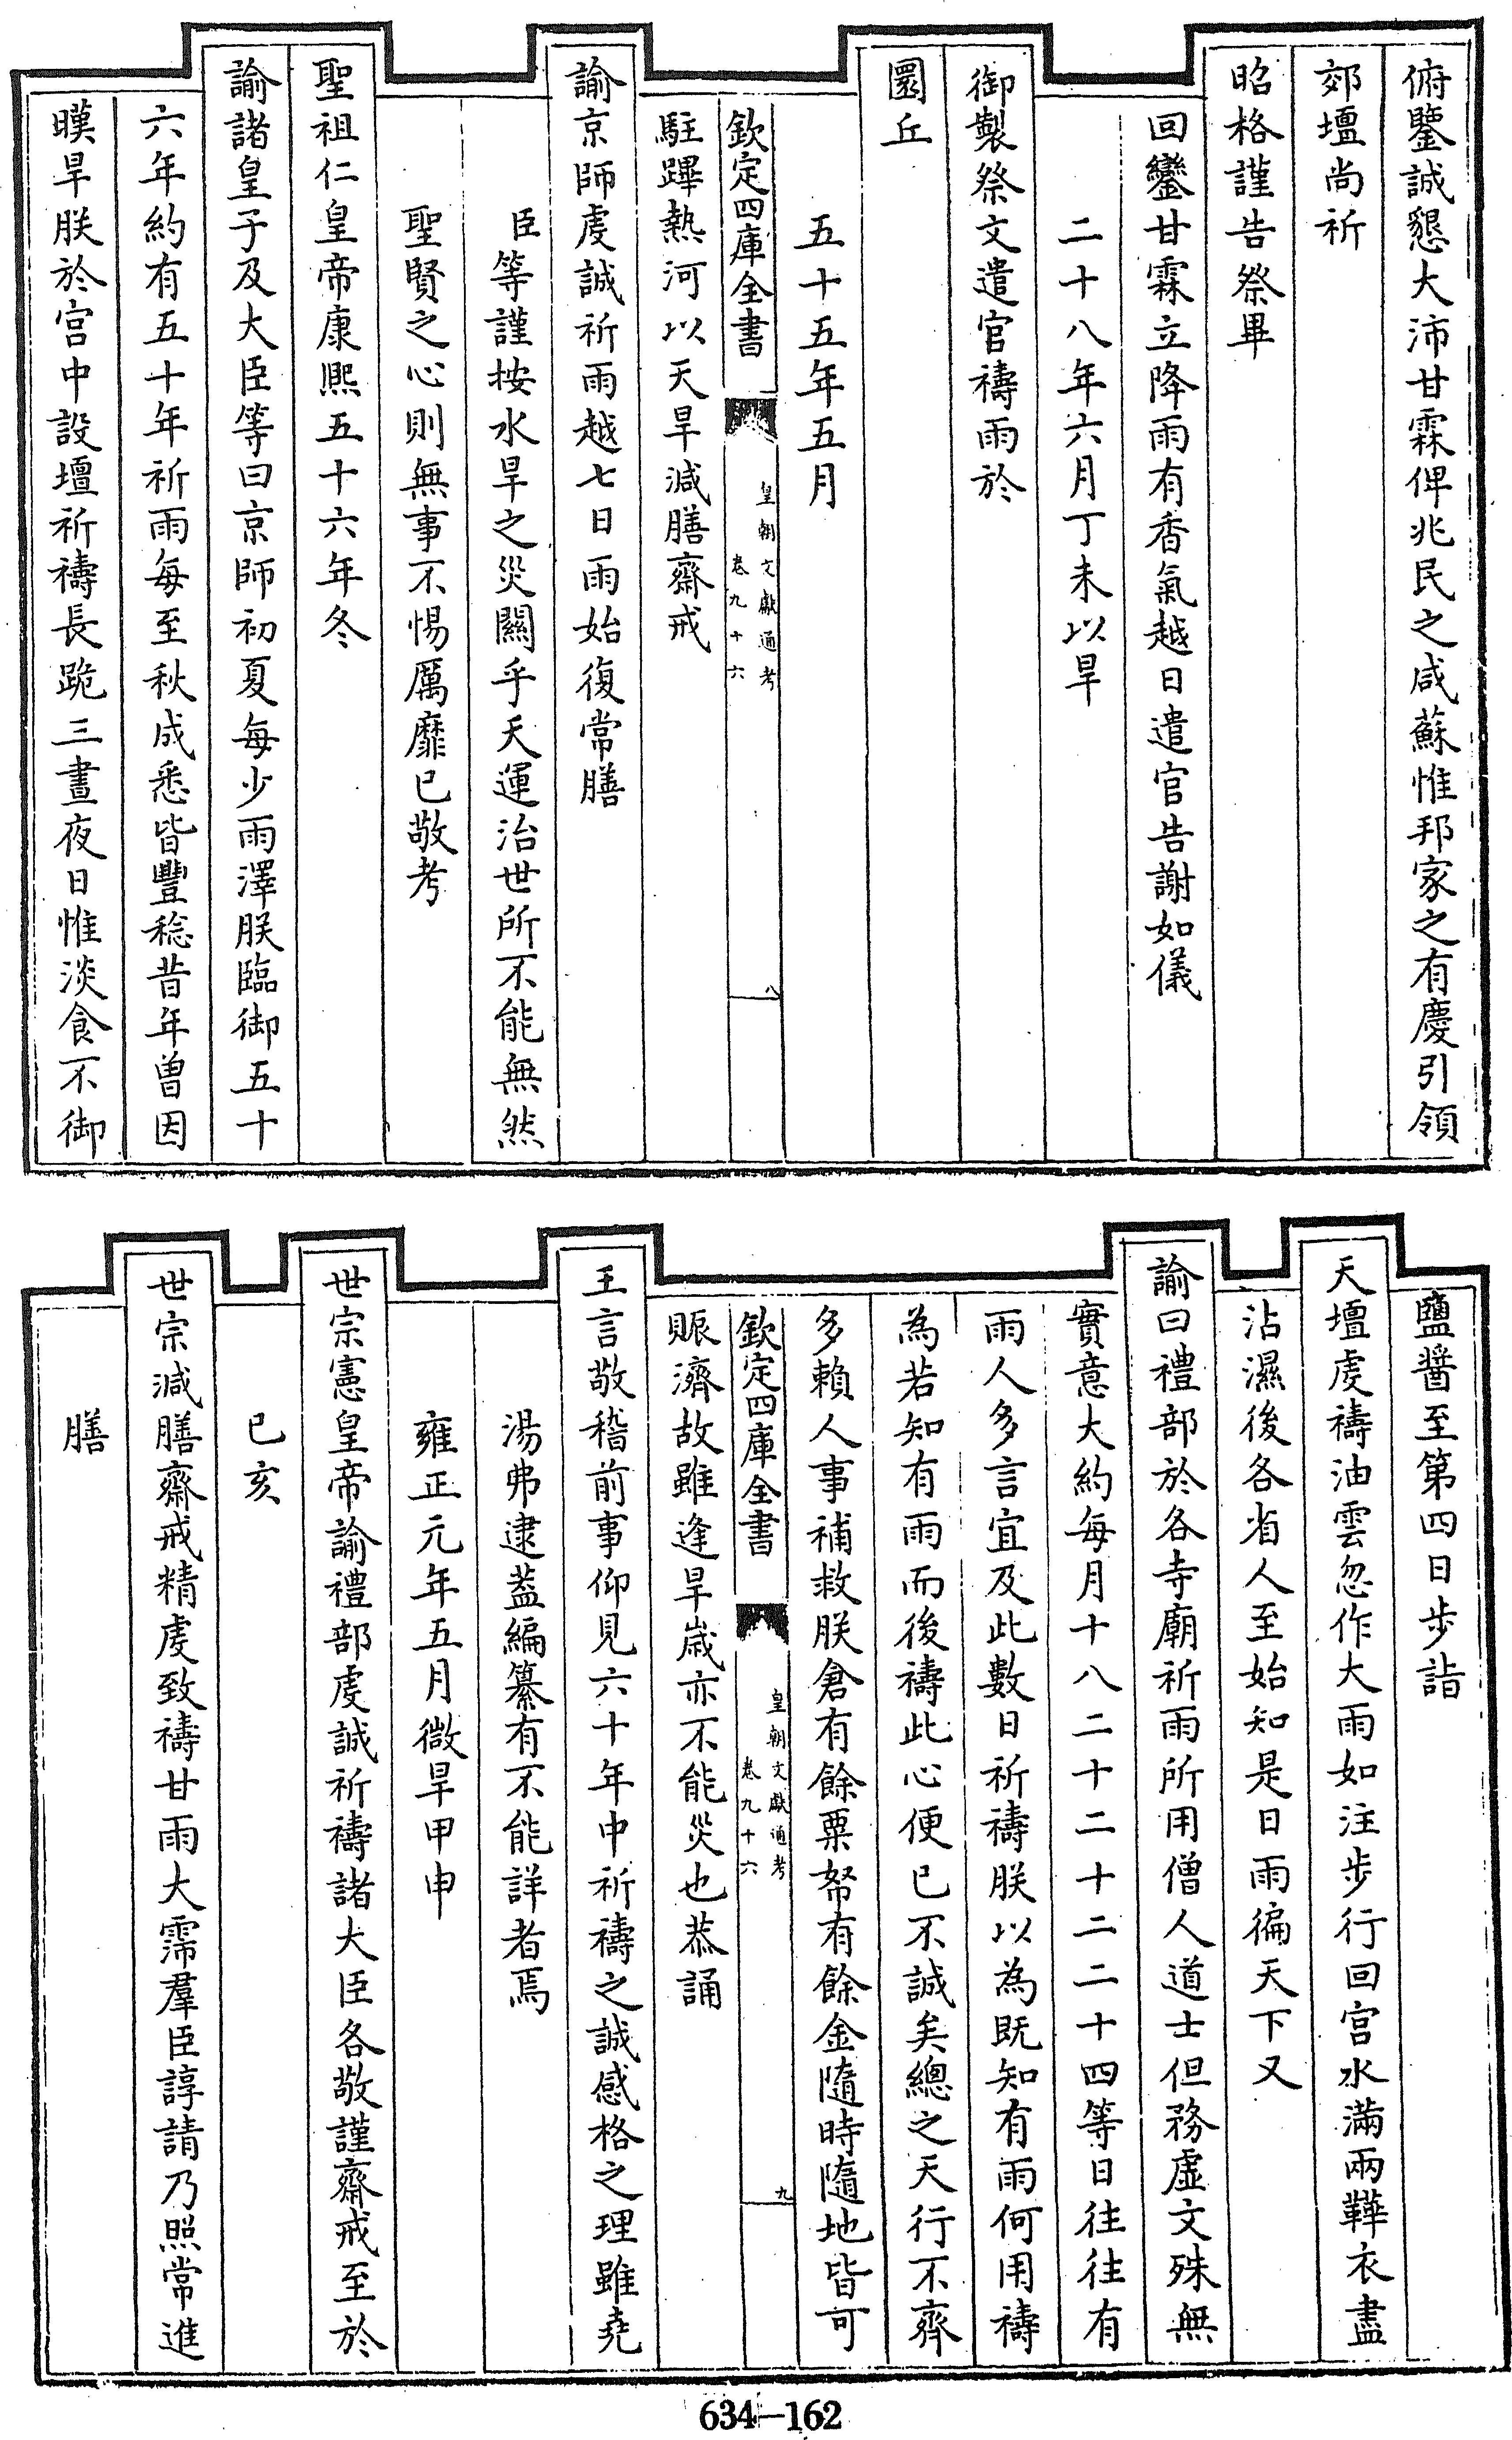 俯鑒誠懇大沛甘霖俾兆民之咸蘇惟邦家之有慶引領
郊壇尚祈
昭格謹告祭畢
回鑾甘霖立降雨有香氣越日遣官告謝如儀
二十八年六月丁未以旱
御製祭文遣官禱雨於
圜丘
五十五年五月
欽定四庫全書
皇朝文獻通考
卷九十六
八
駐蹕熱河以天旱減膳齋戒
諭京師虔誠祈雨越七日雨始復常膳
臣等謹按水旱之災關乎天運治世所不能無然
聖賢之心則無事不惕厲靡已敬考
聖祖仁皇帝康熙五十六年冬
諭諸皇子及大臣等曰京師初夏每少雨澤朕臨御五十
六年約有五十年祈雨每至秋成悉皆豐稔昔年曽因
暵旱朕於宮中設壇祈禱長跪三晝夜日惟淡食不御
鹽醬至第四日步詣
天壇虔禱油雲忽作大雨如注步行回宮水滿兩鞾衣盡
沾濕後各省人至始知是日雨徧天下又
諭曰禮部於各寺廟祈雨所用僧人道士但務虛文殊無
實意大約每月十八二十二十二二十四等日往往有
雨人多言宜及此數日祈禱朕以為既知有雨何用禱
為若知有雨而後禱此心便已不誠矣總之天行不齊
多賴人事補救朕倉有餘粟帑有餘金隨時隨地皆可
欽定四庫全書
皇朝文獻通考
卷九十六
九
賑濟故雖逢旱歲亦不能災也恭誦
王言敬稽前事仰見六十年中祈禱之誠感格之理雖堯
湯弗逮葢編纂有不能詳者焉
雍正元年五月微旱甲申
世宗憲皇帝諭禮部虔誠祈禱諸大臣各敬謹齋戒至於
已亥
世宗減膳齋戒精虔致禱甘雨大霈羣臣諄請乃照常進
膳
634-162